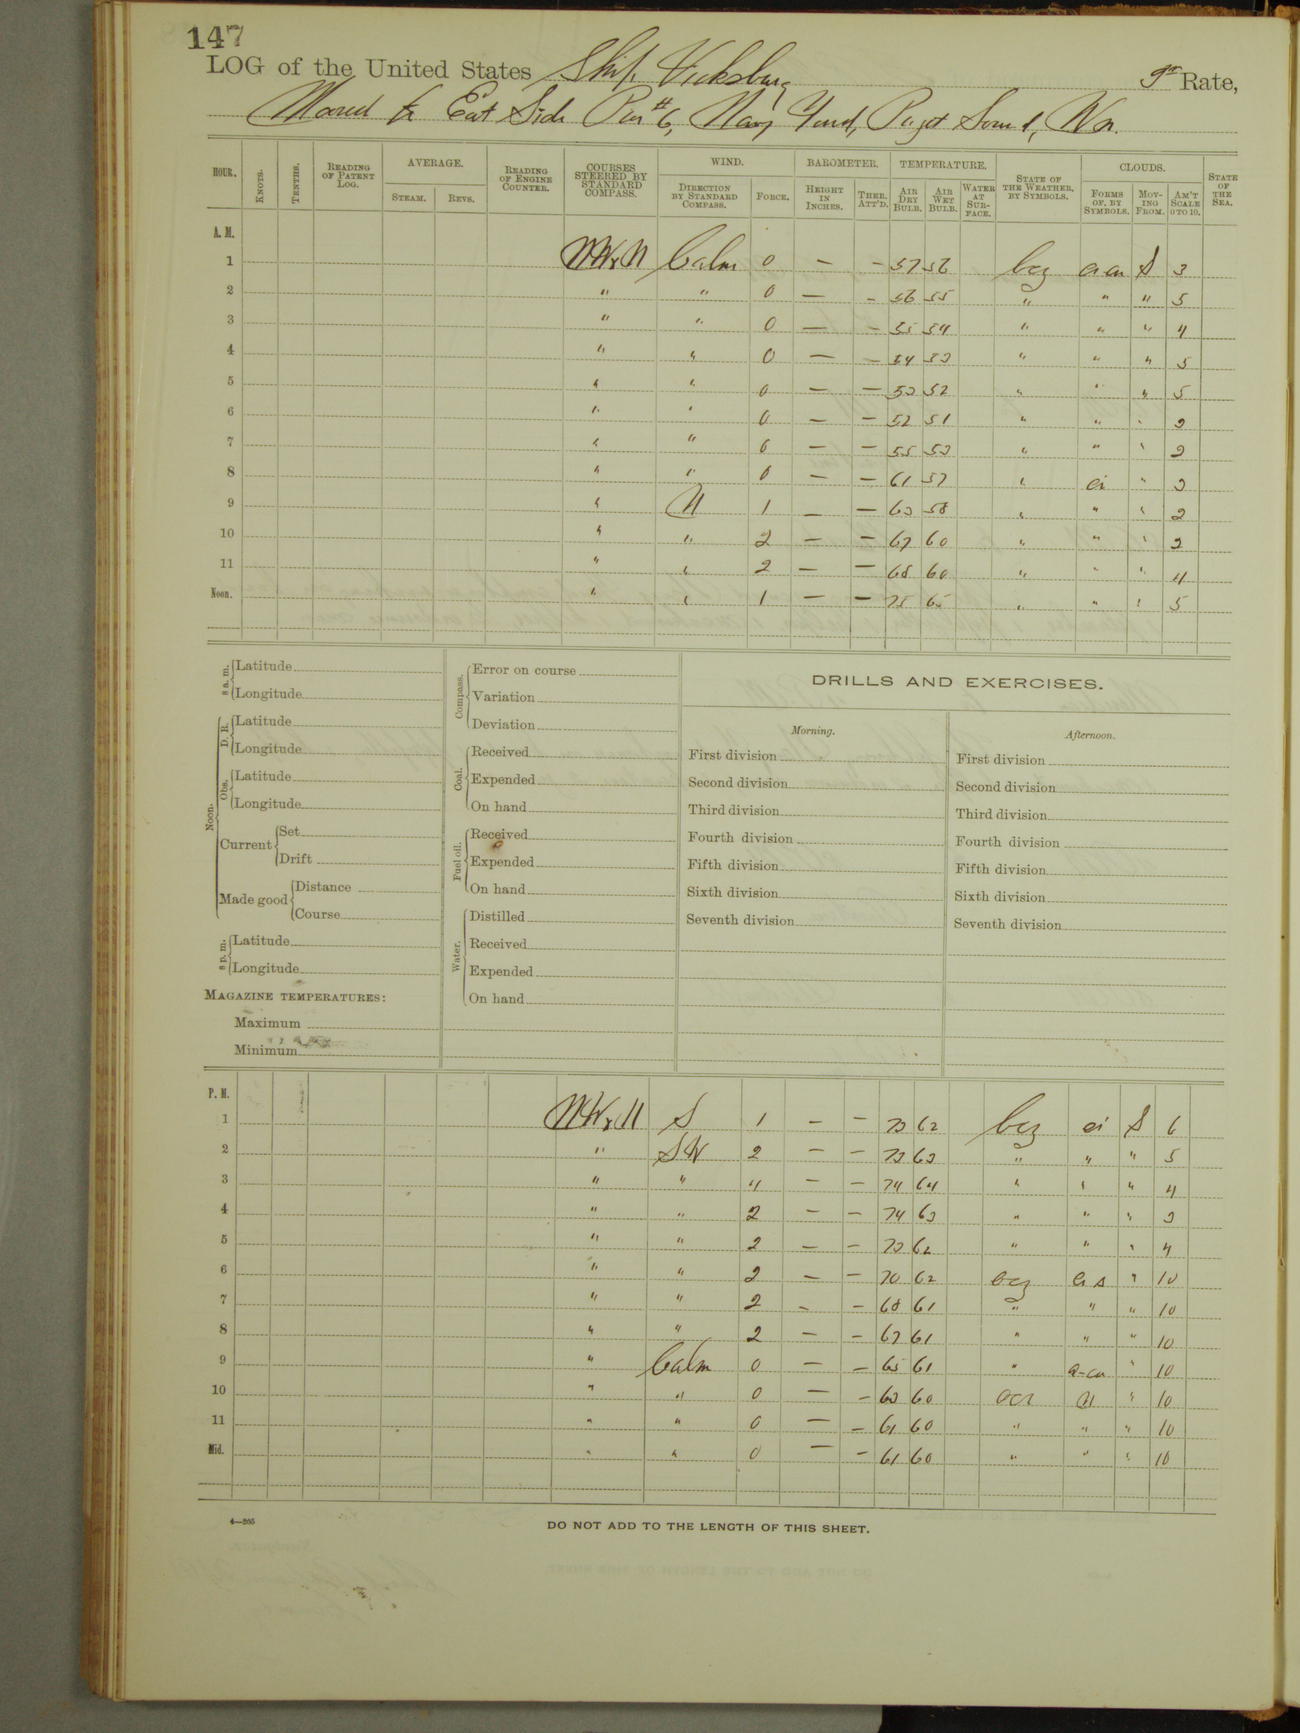 147
LOG of the United States Ship Vicksburg 3rd Rate,
Moored to East Side Pier #6, Navy Yard, Puget Sound, Wn.
HOUR. KNOTS. TENTHS. READING OF PATENT LOG. AVERAGE. STEAM. REVS. READING OF ENGINE COUNTER. COURSES STEERED BY STANDARD COMPASS. WIND. DIRECTION BY STANDARD COMPASS. FORCE. BAROMETER. HEIGHT IN INCHES. THER. ATT'D. TEMPERATURE. AIR DRY BULB. AIR WET BULB. WATER AT SURFACE. STATE OF THE WEATHER, BY SYMBOLS. CLOUDS. FORMS OF, BY SYMBOLS. MOVING FROM. AM'T SCALE 0 TO 10. STATE OF THE SEA.
A. M.
1 NWxN Calm 0 — — 57 56 bcz ci cu S 3
2 " " 0 — — 56 55 " " " 5
3 " " 0 — — 55 54 " " " 4
4 " " 0 — — 54 53 " " " 5
5 " " 0 — — 53 52 " " " 5
6 " " 0 — — 52 51 " " " 3
7 " " 0 — — 55 53 " " " 3
8 " " 0 — — 61 57 " ci " 3
9 " N 1 — — 63 58 " " " 2
10 " " 2 — — 67 60 " " " 3
11 " " 2 — — 68 60 " " " 4
Noon. " " 1 — — 75 65 " " " 5
8 a. m. Latitude
Longitude
Noon. D. R. Latitude
Longitude
Obs. Latitude
Longitude
Current Set
Drift
Made good Distance
Course
8 p. m. Latitude
Longitude
MAGAZINE TEMPERATURES:
Maximum
Minimum
Compass. Error on course
Variation
Deviation
Coal. Received
Expended
On hand
Fuel oil. Received
Expended
On hand
Water. Distilled
Received
Expended
On hand
DRILLS AND EXERCISES.
Morning.
First division
Second division
Third division
Fourth division
Fifth division
Sixth division
Seventh division
Afternoon.
First division
Second division
Third division
Fourth division
Fifth division
Sixth division
Seventh division
P. M.
1 NWxN S 1 — — 73 62 bcz ci S 6
2 " SW 2 — — 73 63 " " " 5
3 " " 4 — — 74 64 " " " 4
4 " " 2 — — 74 63 " " " 3
5 " " 2 — — 73 62 " " " 4
6 " " 2 — — 70 62 ocz ci s " 10
7 " " 2 — — 68 61 " " " 10
8 " " 2 — — 67 61 " " " 10
9 " Calm 0 — — 65 61 " a-cu " 10
10 " " 0 — — 63 60 ocr N " 10
11 " " 0 — — 61 60 " " " 10
Mid. " " 0 — — 61 60 " " " 10
4—265
DO NOT ADD TO THE LENGTH OF THIS SHEET.